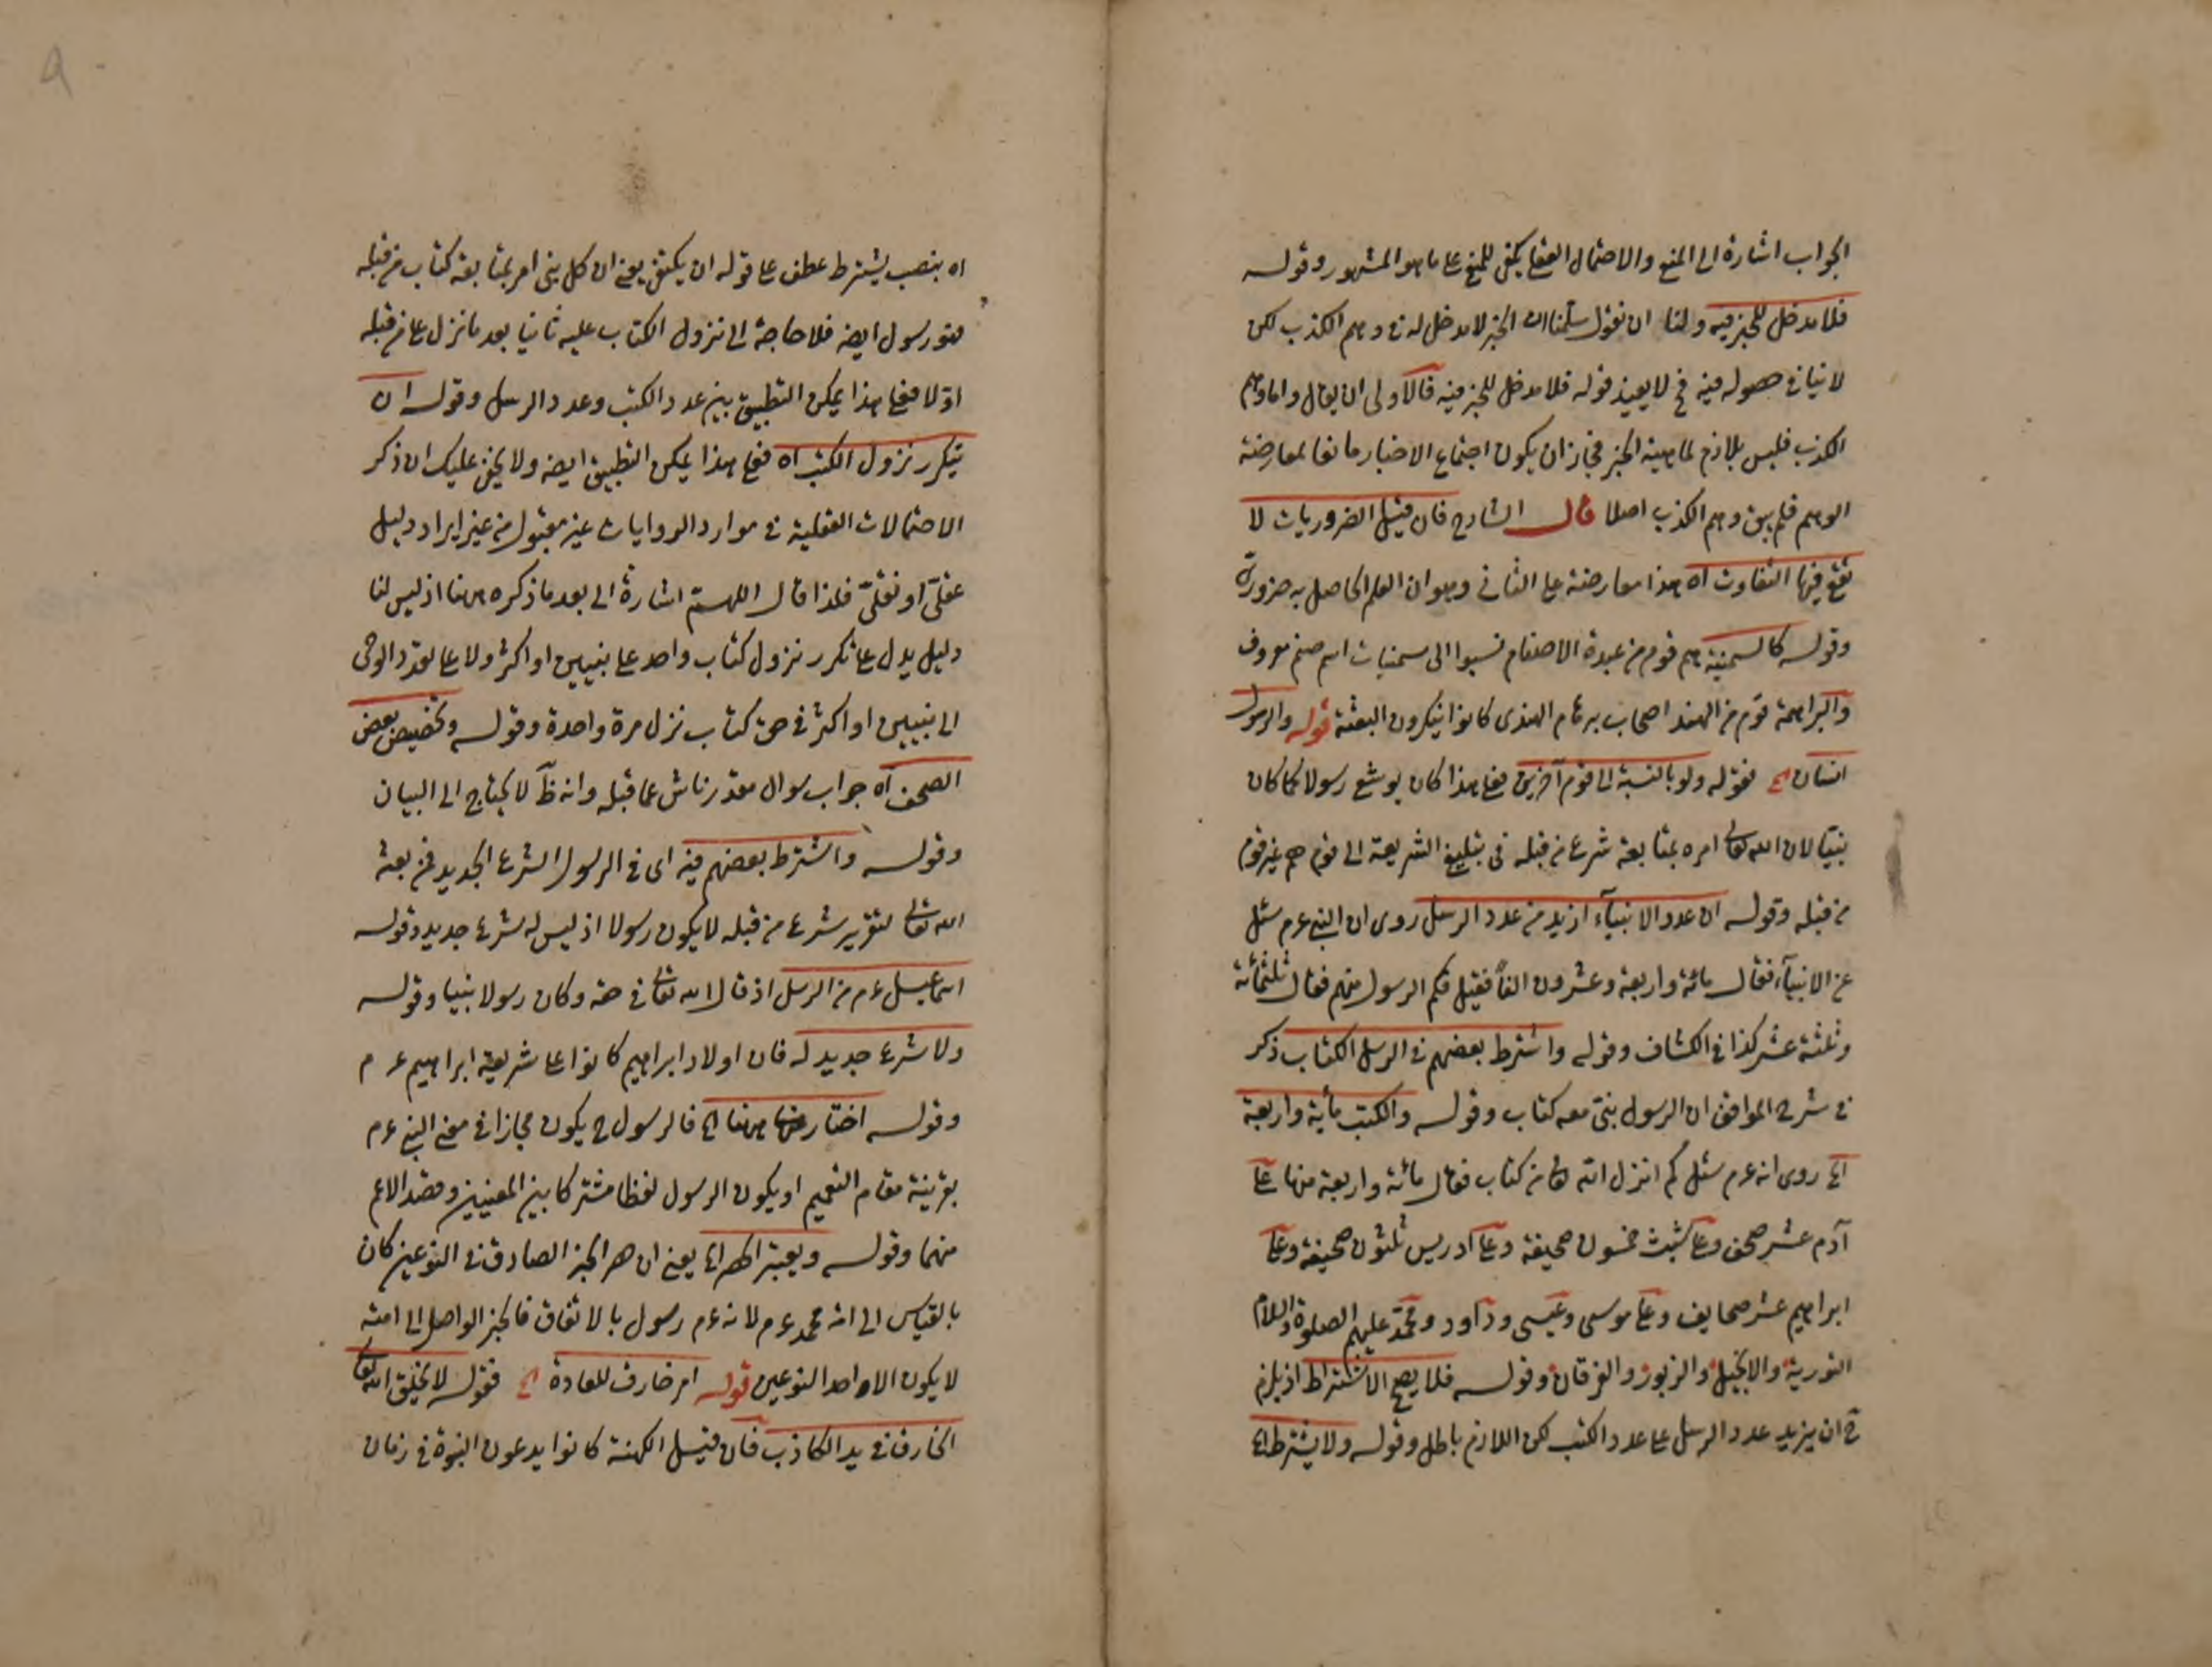 الجواب اشارة الى المنع والاحتمال العقلى يكفى للمنع على ما هو المشهور وقوله
فلا مدخل للخبر فيه ولنا ان نقول سلمنا ان الخبر لا مدخل له فى وهم الكذب لكن
لا ينافى حصوله فيه فح لا يفيد قوله فلا مدخل للخبر فيه فالاولى ان يقال واما وهم
الكذب فليس بلازم لماهية الخبر فجاز ان يكون اجتماع الاخبار مانعا لمعارضة
الوهم فلم يبق وهم الكذب اصلا قال الشارح فان قيل الضروريات لا
تقع فيها التفاوت اه هذا معارضة على الثانى وهو ان العلم الحاصل به ضرورى
وقوله كالسمنية هم قوم من عبدة الاصنام نسبوا الى سمنيات اسم صنم معروف
والبراهمة قوم من الهند اصحاب برهام الهندى كانوا ينكرون البعثة قوله والرسول
انسان الخ فقوله ولو بالنسبة الى قوم آخرين فعلى هذا كان يوشع رسولا كما كان
نبيا لان الله تعالى امره بمتابعة شرع من قبله فى تبليغ الشريعة الى قوم هم غير قوم
من قبله وقوله ان عدد الانبيآء ازيد من عدد الرسل روى ان النبى عم سئل
عن الانبيآء فقال مائة واربعة وعشرون الفا فقيل فكم الرسول منهم فقال ثلثمائة
وثلثة عشر كذا فى الكشاف وقوله واشترط بعضهم فى الرسل الكتاب ذكر
فى شرح المواقف ان الرسول نبى معه كتاب وقوله والكتب مأية واربعة
الخ روى انه عم سئل كم انزل الله تعالى من كتاب فقال مائة واربعة منها على
آدم عشر صحف وعلى شيث خمسون صحيفة وعلى ادريس ثلثون صحيفة وعلى
ابراهيم عشر صحايف وعلى موسى وعيسى وداود ومحمد عليهم الصلوة والسلام
التورية والانجيل والزبور والفرقان وقوله فلا يصح الاشتراط اذ يلزم
ح ان يزيد عدد الرسل على عدد الكتب لكن اللازم باطل وقوله ولا يشترط الخ
اه بنصب يشترط عطف على قوله ان يكتفى يعنى ان كل نبى امر بمتابعة كتاب من قبله
فهو رسول ايضه فلا حاجة الى نزول الكتاب عليه ثانيا بعد ما نزل على من قبله
اولا فعلى هذا يمكن التطبيق بين عدد الكتب وعدد الرسل وقوله ان
يتكرر نزول الكتب اه فعلى هذا يمكن التطبيق ايضه ولا يخفى عليك ان ذكر
الاحتمالات العقلية فى موارد الروايات غير مقبول من غير ايراد دليل
عقلى او نقلى فلذا قال اللهم اشارة الى بعد ما ذكره ههنا اذ ليس لنا
دليل يدل على تكرر نزول كتاب واحد على نبيين او اكثر ولا على تعدد الوحى
الى نبيين او اكثر فى حق كتاب نزل مرة واحدة وقوله وتخصيص بعض
الصحف اه جواب سوال مقدر ناش عما قبله وانه ظ لا يحتاج الى البيان
وقوله واشترط بعضهم فيه اى فى الرسول الشرع الجديد فمن بعثه
الله تعالى لتقرير شرع من قبله لا يكون رسولا اذ ليس له شرع جديد وقوله
اسماعيل عم من الرسل اذ قال الله تعالى فى حقه وكان رسولا نبيا وقوله
ولا شرع جديد له فان اولاد ابراهيم كانوا على شريعة ابراهيم عم
وقوله اختار ههنا الخ فالرسول ح يكون مجازا فى معنى النبى عم
بقرينة مقام التعميم او يكون الرسول لفظا مشتركا بين المعنيين وقصد الاعم
منهما وقوله ويعتبر الحصر الخ يعنى ان حصر الخبر الصادق فى النوعين كان
بالقياس الى امة محمد عم لانه عم رسول بالاتفاق فالخبر الواصل الى امته
لا يكون الا احد النوعين قوله امر خارق للعادة الخ فقوله لا يخلق الله تعالى
الخارق فى يد الكاذب فان قيل الكهنة كانوا يدعون النبوة فى زمان